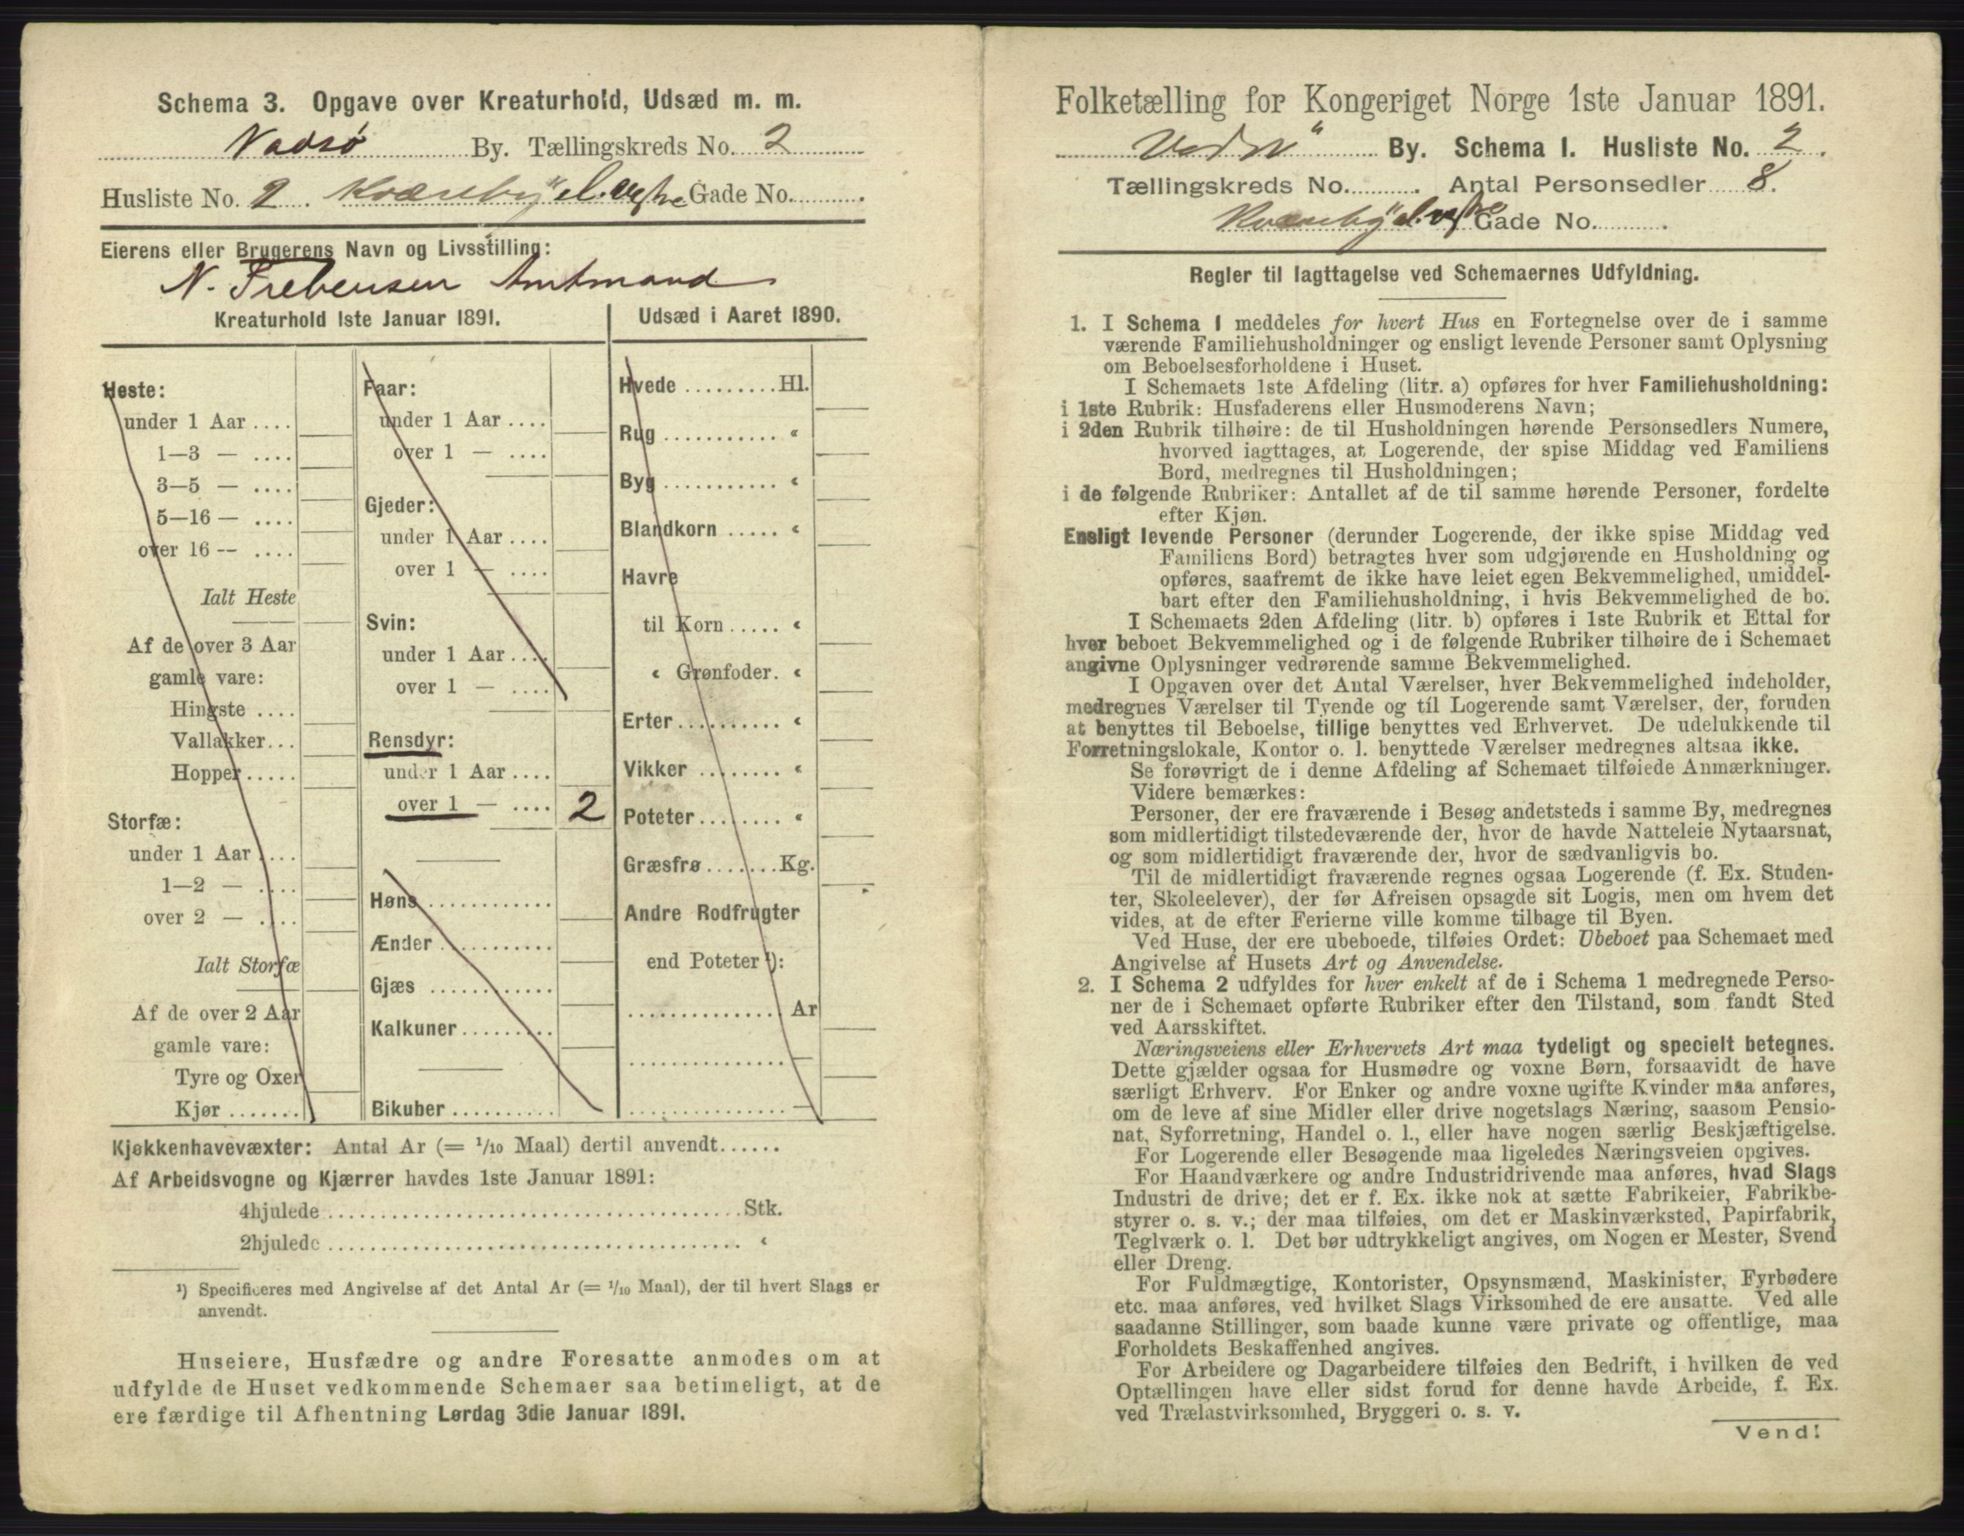 Schema 3. Opgave over Kreaturhold, Udsæd m. m.
Vadsø By. Tællingskreds No. 2
Husliste No. 2. Kvænby Gade No.
Eierens eller Brugerens Navn og Livsstilling:
N. Prebensen Amtmand
Kreaturhold 1ste Januar 1891.
Heste:
under 1 Aar ....
1—3 — ....
3—5 — ....
5—16 — ....
over 16 — ....
Ialt Heste
Af de over 3 Aar
gamle vare:
Hingste ....
Vallakker...
Hopper.....
Storfæ:
under 1 Aar ....
1—2 — ....
over 2 — ....
Ialt Storfæ
Af de over 2 Aar
gamle vare:
Tyre og Oxer
Kjør.......
Faar:
under 1 Aar ....
over 1 — ....
Gjeder:
under 1 Aar ....
over 1 — ....
Svin:
under 1 Aar ....
over 1 — ....
Rensdyr:
under 1 Aar ....
over 1 — .... 2
Høns............
Ænder...........
Gjæs............
Kalkuner.........
Bikuber..........
Udsæd i Aaret 1890.
Hvede.........Hl.
Rug........... «
Byg........... «
Blandkorn..... «
Havre
til Korn..... «
« Grønfoder. «
Erter.......... «
Vikker........ «
Poteter........ «
Græsfrø.......Kg.
Andre Rodfrugter
end Poteter ¹):
............... Ar
............... —
............... —
Kjøkkenhavevæxter: Antal Ar (= 1/10 Maal) dertil anvendt......
Af Arbeidsvogne og Kjærrer havdes 1ste Januar 1891:
4hjulede.......................................Stk.
2hjulede....................................... «
¹) Specificeres med Angivelse af det Antal Ar (= 1/10 Maal), der til hvert Slags er
anvendt.
Huseiere, Husfædre og andre Foresatte anmodes om at
udfylde de Huset vedkommende Schemaer saa betimeligt, at de
ere færdige til Afhentning Lørdag 3die Januar 1891.
Folketælling for Kongeriget Norge 1ste Januar 1891.
Vadsø By. Schema 1. Husliste No. 2.
Tællingskreds No. ........ Antal Personsedler 8.
Kvænby Gade No. ..........
Regler til Iagttagelse ved Schemaernes Udfyldning.
1. I Schema 1 meddeles for hvert Hus en Fortegnelse over de i samme
værende Familiehusholdninger og ensligt levende Personer samt Oplysning
om Beboelsesforholdene i Huset.
I Schemaets 1ste Afdeling (litr. a) opføres for hver Familiehusholdning:
i 1ste Rubrik: Husfaderens eller Husmoderens Navn;
i 2den Rubrik tilhøire: de til Husholdningen hørende Personsedlers Numere,
hvorved iagttages, at Logerende, der spise Middag ved Familiens
Bord, medregnes til Husholdningen;
i de følgende Rubriker: Antallet af de til samme hørende Personer, fordelte
efter Kjøn.
Ensligt levende Personer (derunder Logerende, der ikke spise Middag ved
Familiens Bord) betragtes hver som udgjørende en Husholdning og
opføres, saafremt de ikke have leiet egen Bekvemmelighed, umiddel-
bart efter den Familiehusholdning, i hvis Bekvemmelighed de bo.
I Schemaets 2den Afdeling (litr. b) opføres i 1ste Rubrik et Ettal for
hver beboet Bekvemmelighed og i de følgende Rubriker tilhøire de i Schemaet
angivne Oplysninger vedrørende samme Bekvemmelighed.
I Opgaven over det Antal Værelser, hver Bekvemmelighed indeholder,
medregnes Værelser til Tyende og til Logerende samt Værelser, der, foruden
at benyttes til Beboelse, tillige benyttes ved Erhvervet. De udelukkende til
Forretningslokale, Kontor o. l. benyttede Værelser medregnes altsaa ikke.
Se forøvrigt de i denne Afdeling af Schemaet tilføiede Anmærkninger.
Videre bemærkes:
Personer, der ere fraværende i Besøg andetsteds i samme By, medregnes
som midlertidigt tilstedeværende der, hvor de havde Natteleie Nytaarsnat,
og som midlertidigt fraværende der, hvor de sædvanligvis bo.
Til de midlertidigt fraværende regnes ogsaa Logerende (f. Ex. Studen-
ter, Skoleelever), der før Afreisen opsagde sit Logis, men om hvem det
vides, at de efter Ferierne ville komme tilbage til Byen.
Ved Huse, der ere ubeboede, tilføies Ordet: Ubeboet paa Schemaet med
Angivelse af Husets Art og Anvendelse.
2. I Schema 2 udfyldes for hver enkelt af de i Schema 1 medregnede Perso-
ner de i Schemaet opførte Rubriker efter den Tilstand, som fandt Sted
ved Aarsskiftet.
Næringsveiens eller Erhvervets Art maa tydeligt og specielt betegnes.
Dette gjælder ogsaa for Husmødre og voxne Børn, forsaavidt de have
særligt Erhverv. For Enker og andre voxne ugifte Kvinder maa anføres,
om de leve af sine Midler eller drive nogetslags Næring, saasom Pensio-
nat, Syforretning, Handel o. l., eller have nogen særlig Beskjæftigelse.
For Logerende eller Besøgende maa ligeledes Næringsveien opgives.
For Haandværkere og andre Industridrivende maa anføres, hvad Slags
Industri de drive; det er f. Ex. ikke nok at sætte Fabrikeier, Fabrikbe-
styrer o. s. v.; der maa tilføies, om det er Maskinværksted, Papirfabrik,
Teglværk o. l. Det bør udtrykkeligt angives, om Nogen er Mester, Svend
eller Dreng.
For Fuldmægtige, Kontorister, Opsynsmænd, Maskinister, Fyrbødere
etc. maa anføres, ved hvilket Slags Virksomhed de ere ansatte. Ved alle
saadanne Stillinger, som baade kunne være private og offentlige, maa
Forholdets Beskaffenhed angives.
For Arbeidere og Dagarbeidere tilføies den Bedrift, i hvilken de ved
Optællingen have eller sidst forud for denne havde Arbeide, f. Ex.
ved Trælastvirksomhed, Bryggeri o. s. v.
Vend!